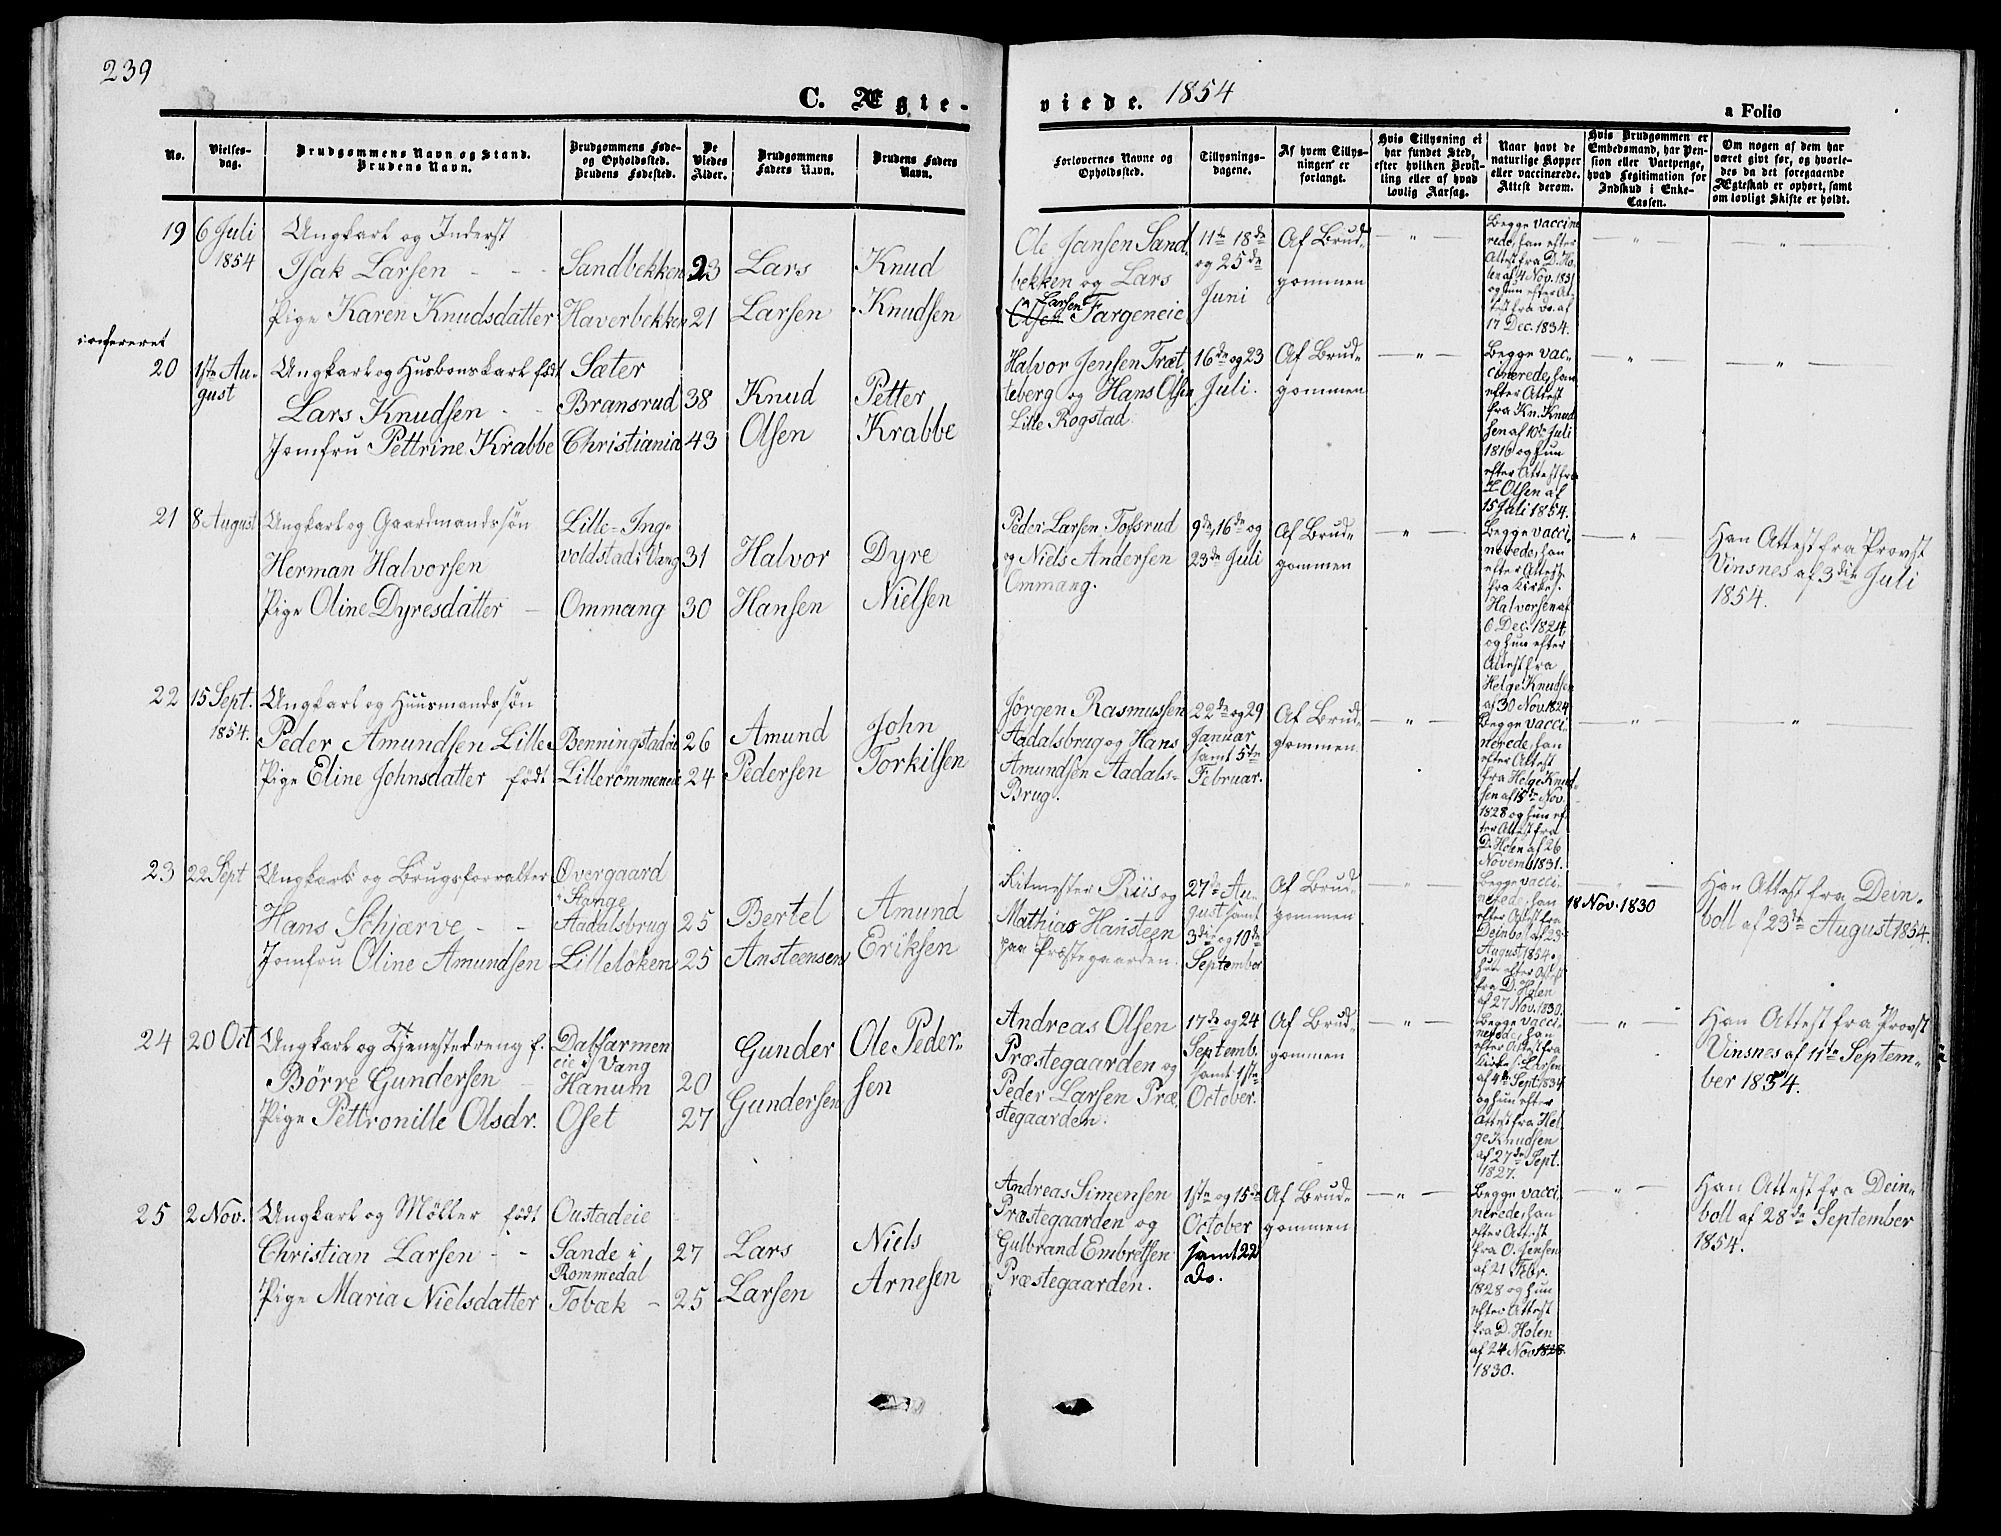 239
C. Ægte-
viede. 1854
a Folio
No.
Vielses-
dag.
Brudgommens Navn og Stand.
Brudens Navn.
Brudgommens Føde-
og Opholdssted.
Brudens Fødested.
De
Viedes
Alder.
Brudgommens
Faders Navn.
Brudens Faders
Navn.
Forlovernes Navne og
Opholdssted.
Tillysnings-
dagene.
Af hvem Tillys-
ningen er
forlangt.
Hvis Tillysning ei
har fundet Sted,
efter hvilken Bevil-
ling eller af hvad
lovlig Aarsag.
Naar havt de
naturlige Kopper
eller vaccinerede.
Attest derom.
Hvis Brudgommen er
Embedsmand, har Pen-
sion eller Vartpenge,
hvad Legitimation for
Indskud i Enke-
Cassen.
Om nogen af dem har
været givt før, og hvorle-
des da det foregaaende
Ægteskab er ophørt, samt
om lovligt Skifte er holdt.
19
6 Juli
1854
Ungkarl og Inderst
Isak Larsen - -
Pige Karen Knudsdatter
Sandbekken
Haverbekken
23
21
Lars
Larsen
Knud
Knudsen
Ole Jansen Sand-
bekken og Lars
Larsen
Olsen Fargeneie
11te 18de
og 25de
Juni
Af Brud-
gommen
Begge vaccine
rede, han efter
Attest fra D. Ho-
len af 4 Nov. 1831
og hun efter At-
test fra do. af
17 Dec. 1834.
20
1ste Au-
gust
Ungkarl og Husbonskarl født
Lars Knudsen - -
Jomfru Pettrine Krabbe
Sæter
Bransrud
Christiania
38
43
Knud
Olsen
Petter
Krabbe
Halvor Jensen Træt-
teberg og Hans Olsen
Lille Rogstad.
16de og 23
Juli.
Af Brud-
gommen
Begge vac-
cinerede, han
efter Attest
fra Kn. Knud-
sen af 10de Juli
1816 og hun
efter Attest fra
L Olsen af
15 Juli 1854.
21
8 August
Ungkarl og Gaardmandssøn
Herman Halvorsen
Pige Oline Dyresdatter -
Lille-Ing-
voldstad i Vang
Ommang
31
30
Halvor
Hansen
Dyre
Nielsen
Peder Larsen Tofsrud
og Niels Andersen
Ommang.
9de, 16de og
23de Juli
Af Brud-
gommen
Begge vacci-
nerede, han
efter Attest
fra Kirkes.
Halvorsen af
6 Dec. 1824,
og hun efter
Attest fra
Helge Knudsen
af 30 Nov. 1824
Han Attest fra Provst
Vinsnes af 3die Juli
1854.
22
15 Sept.
1854.
Ungkarl og Huusmandssøn
Peder Amundsen Lille
Pige Eline Johnsdatter født
Benningstadeie
Lillerømmeneie
26
24
Amund
Pedersen
John
Torkilsen
Jørgen Rasmussen
Aadalsbrug og Hans
Amundsen Aadals-
Brug.
22de og 29
Januar
samt 5te
Februar.
Af Brud-
gommen
Begge vacci-
nerede, han
efter Attest
fra Helge Knud-
sen af 15de Nov.
1828 og hun ef-
ter Attest fra
D. Holen af 26
Novemb 1831.
23
22 Sept
Ungkarl og Brugsforvalter
Hans Schjærve - -
Jomfru Oline Amundsen
Overgaard
i Stange
Aadalsbrug
Lilleløken
25
25
Bertel
Ansteensen
Amund
Eriksen
Ritmester Riis og
Mathias Hansteen
paa Præstegaarden.
27de Au-
gust samt
3die og 10de
September
Af Brud-
gommen
Begge vacci-
nerede, han
efter Attest fra
Deinbol af 23
August 1854,
hun efter Attest
fra D. Holen
af 27 Nov. 1830.
18 Nov. 1830
Han Attest fra Dein-
boll af 23de August 1854.
24
20 Oct
Ungkarl og Tjenestedreng f.
Börre Gundersen -
Pige Pettronille Olsdr.
Dalfarmen
eie i Vang
Hanum
Oset
20
27
Gunder
Gundersen
Ole Peder-
sen
Andreas Olsen
Præstegaarden og
Peder Larsen Præ-
stegaarden.
17de og 24
Septemb.
samt 1ste
October.
Af Brud-
gommen
Begge vacci-
nerede, han
efter Attest fra
Kirkes. Larsen
af 4de Sept. 1834
og hun efter
Attest fra Hel-
ge Knudsen
af 27de Sept.
1827.
Han Attest fra Provst
Vinsnes af 11te Septem-
ber 1854.
25
2 Nov.
Ungkarl og Møller født
Christian Larsen - -
Pige Maria Nielsdatter
Oustadeie
Sande i
Rommedal
Tobæk -
27
25
Lars
Larsen
Niels
Arnesen
Andreas Simensen
Præstegaarden og
Gulbrand Embretsen
Præstegaarden.
1ste og 15de
October
samt 22
do.
Af Brud-
gommen
Begge vacci-
nerede, han
efter Attest
fra O. Jensen
af 21 Febr.
1828 og hun
efter Attest
fra D. Holen
af 24 Nov 1828
1830.
Han Attest fra Dein-
boll af 28de September
1854.